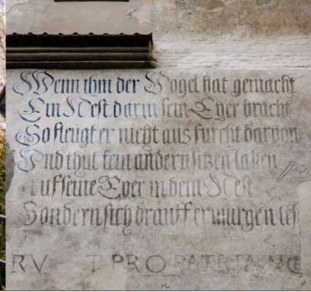 Wenn ihm der Vogel hat gemacht
Ein Nest darin sein Eyer bracht
So fleugt er nicht aus furcht darvon
Und thut kein andern sitzen lassen
uf seine Eyer in dem Nest
Sondern sich drauff erwürgen les
RV T PRO PATRIA